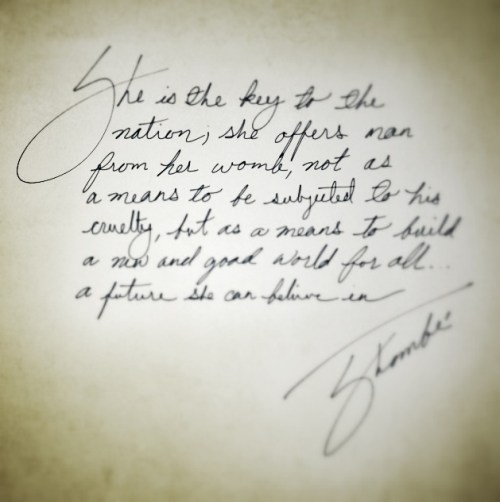 She is the key to the
nation; she offers man
from her womb, not as
a means to be subjected to his
cruelty, but as a means to build
a new and good world for all...
a future she can believe in